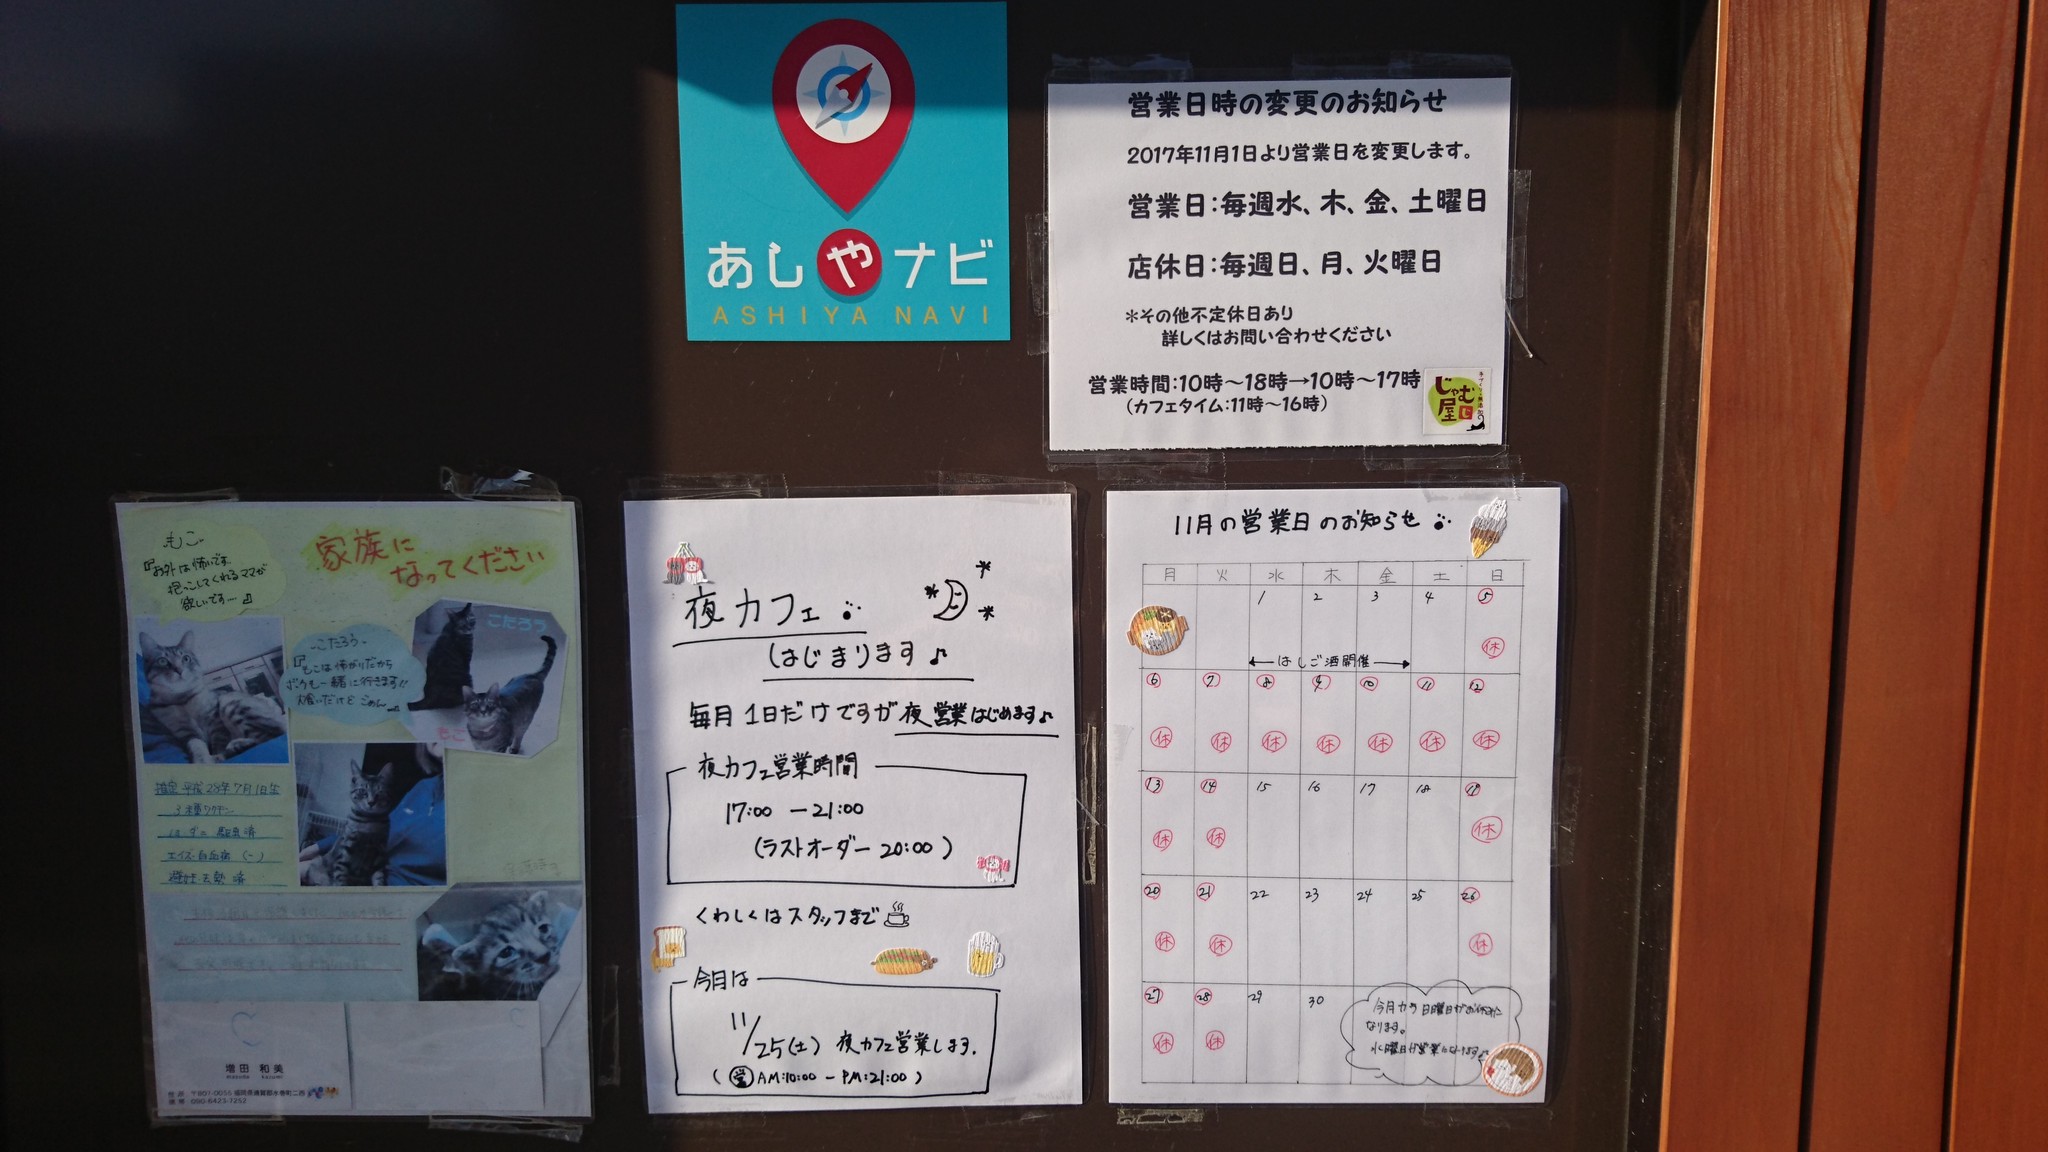 あしやナビ
ASHIYA NAVI
営業日時の変更のお知らせ
2017年11月1日より営業日を変更します。
営業日：毎週水、木、金、土曜日
店休日：毎週日、月、火曜日
＊その他不定休日あり
詳しくはお問い合わせください
営業時間：10時～18時→10時～17時
（カフェタイム：11時～16時）
じゃむ屋
もこ
『お外は怖いです
抱っこしてくれるママが
欲しいですー』
家族に
なってください
こたろう
『もこは怖がりだから
ボクも一緒に行きます!!
こたろう
もこ
推定平成28年7月1日生
3種ワクチン
エイズ・白血病（－）
増田 和美
masuda kazumi
〒807-0055 福岡県遠賀郡水巻町二西
090-6423-7252
夜カフェ
はじまります♪
毎月1日だけですが夜営業はじめます♪
夜カフェ営業時間
17:00 ー 21:00
（ラストオーダー 20:00）
くわしくはスタッフまで
今月は
11/25(土) 夜カフェ営業します.
（営 AM:10:00 － PM:21:00）
11月の営業日のお知らせ
月 火 水 木 金 土 日
1 2 3 4 5
休
←はしご酒開催→
6 7 8 9 10 11 12
休 休 休 休 休 休 休
13 14 15 16 17 18 19
休 休 休
20 21 22 23 24 25 26
休 休 休
27 28 29 30
休 休
今月から日曜日がお休みに
なります。
水曜日が営業になります♪